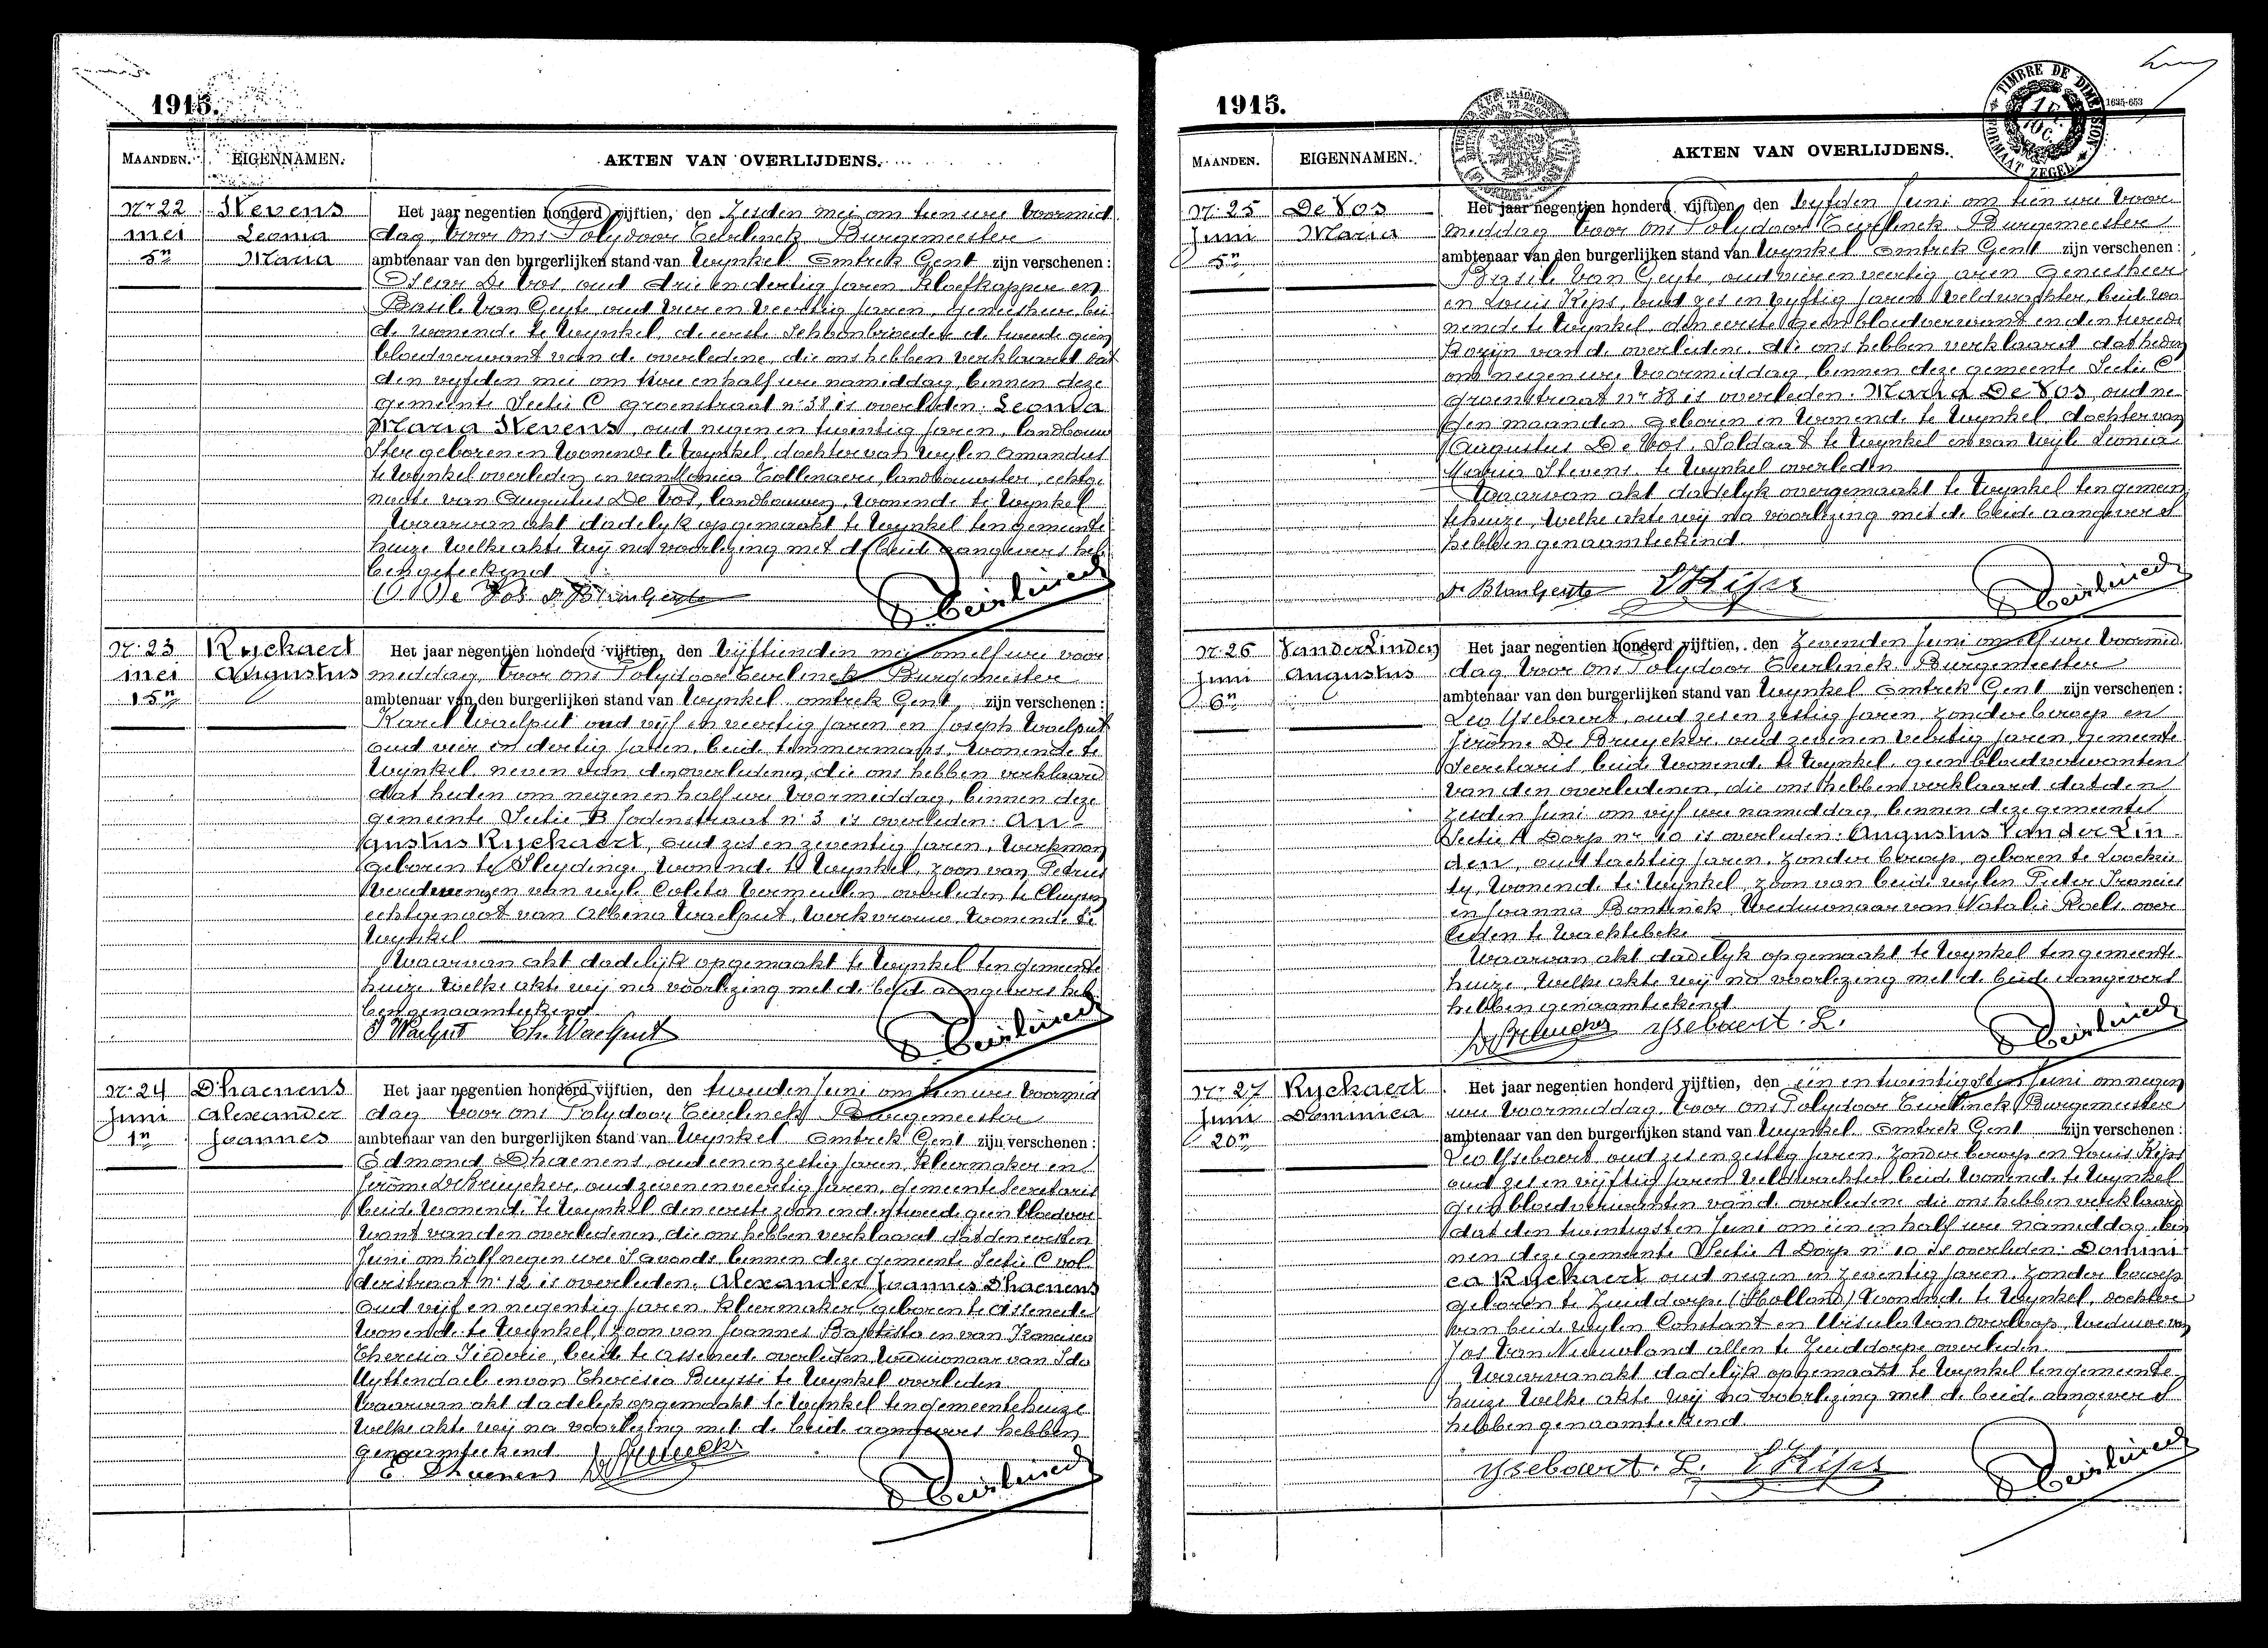 1915.
MAANDEN. EIGENNAMEN. AKTEN VAN OVERLIJDENS.
Nr 22
mei
5n
Stevens
Leonia
Maria
Het jaar negentien honderd vijftien, den Zesden mei om tien ure voormid
dag, voor ons Polydoor Teirlinck Burgemeester
ambtenaar van den burgerlijken stand van Wynkel Omtrek Gent zijn verschenen:
Oscar De Vos, oud drie en dertig jaren, kloefkapper en
Basile Van Geyte oud vier en veertig jaren, geneesheer bei
de wonende te Wynkel, de eerste schoonbroeder de tweede geen
bloedverwant van de overledene, die ons hebben verklaard dat
den vyfden mei om twee en half ure namiddag, binnen deze
gemeente Sectie C groenstraat nr 38 is overleden: Leonia
Maria Stevens, oud negen en twintig jaren, landbouw
ster geboren en wonende te Wynkel, dochter van wylen Amandus
te Wynkel overleden en van Monica Tollenaere, landbouwster, echtge
noote van Augustus De Vos, landbouwer, wonende te Wynkel
Waarvan akt dadelyk opgemaakt te Wynkel ten gemeente
huize Welke akte Wy na voorlezing met de beide aangevers heb
ben geteekend
O De Vos dr B VanGeyte P Teirlinck
Nr 23
mei
15n
Ryckaert
Augustus
Het jaar negentien honderd vijftien, den Vyftienden mei om elf ure voor
middag, voor ons Polydoor Teirlinck Burgemeester
ambtenaar van den burgerlijken stand van Wynkel omtrek Gent, zijn verschenen:
Karel Waelput oud vijf en veertig jaren en Joseph Waelput
oud vier en dertig jaren, beide timmermans, wonende te
Wynkel, neven van den overledenen, die ons hebben verklaard
dat heden om negen en half ure voormiddag, binnen deze
gemeente Sectie B Jodenstraat nr 3 is overleden: Au-
gustus Ryckaert, oud zes en zeventig jaren, werkman
geboren te Sleydinge, wonende te Wynkel, zoon van Petrus
en van wyle Coleta Vermeulen overleden te Cluysen
echtgenoot van Albina Waelput, Werkvrouw, wonende te
Wynkel
Waarvan akt dadelijk opgemaakt te Wynkel ten gemeente
huize. Welke akte wij na voorlezing met de beide aangevers heb
ben genaamteekend
J Waelput Ch. Waelput P Teirlinck
Nr 24
Juni
1n
D'haenens
Alexander
Joannes
Het jaar negentien honderd vijftien, den tweeden Juni om tien ure voormid
dag voor ons Polydoor Teirlinck Burgemeester
ambtenaar van den burgerlijken stand van Wynkel omtrek Gent zijn verschenen:
Edmond Dhaenens, oud een en zestig jaren, kleermaker en
Jerôme De Bruyckere, oud zeven en veertig jaren, gemeente Secretaris
beide wonende te Wynkel den eerste zoon en den tweede geen bloedver
want van den overledenen, die ons hebben verklaard dat den eersten
Juni om half negen ure s'avonds binnen deze gemeente Sectie C vol
derstraat nr 12 is overleden. Alexander Joannes Dhaenens
oud vijf en negentig jaren kleermaker, geboren te Assenede
wonende te Wynkel, Zoon van Joannes Baptista en van Francisca
Theresia beide te Assenede overleden, Weduwnaar van Ida
Uyttendaele en van Theresia Buysse te Wynkel overleden
Waarvan akt dadelyk opgemaakt te Wynkel ten gemeentehuize
Welke akte wij na voorlezing met de beide aangevers hebben
genaamteekend
E. Dhaenens P Teirlinck
1915.
1635-653
TIMBRE DE DIMENSION
FORMAAT ZEGEL
MAANDEN. EIGENNAMEN. AKTEN VAN OVERLIJDENS.
Nr. 25
Juni
5n
De Vos
Maria
Het jaar negentien honderd vijftien, den Vyfden Juni om tien ure voor
middag voor ons Polydoor Teirlinck Burgemeester
ambtenaar van den burgerlijken stand van Wynkel Omtrek Gent zijn verschenen:
Basile Van Geyte, oud vier en veertig jaren Geneesheer
en Louis Kips, oud zes en vyftig jaren Veldwachter, beide wo
nende te Wynkel, den eerste geen bloedverwant en den tweede
kozijn van de overledene. die ons hebben verklaard dat heden
om negen ure voormiddag, binnen deze gemeente Sectie C
groenstraat nr 38 is overleden. Maria De Vos, oud ne
gen maanden, geboren en wonende te Wynkel dochter van
Augustus De Vos, Soldaat te Wynkel en van wyle Leonia
Maria Stevens te Wynkel overleden
Waarvan akt dadelyk overgemaakt te Wynkel ten gemeen
tehuize, Welke akte wij na voorlezing met de beide aangevers
hebben genaamteekend
dr B VanGeyte L Kips P Teirlinck
Nr. 26
Juni
6n
Van der Linden
Augustus
Het jaar negentien honderd vijftien, den Zevenden Juni om elf ure voormid
dag voor ons Polydoor Teirlinck Burgemeester
ambtenaar van den burgerlijken stand van Wynkel Omtrek Gent zijn verschenen:
Leo Ysebaert, oud zes en zestig jaren, zonder beroep en
Jerôme De Bruyckere, oud zeven en veertig jaren, gemeente
Secretaris, beide wonende te Wynkel, geen bloedverwanten
van den overledenen, die ons hebben verklaard dat den
zesden Juni om vijf ure namiddag, binnen deze gemeente
Sectie A Dorp nr 10 is overleden: Augustus Van der Lin-
den, oud tachtig jaren, zonder beroep, geboren te Loochris
ty, Wonende te Wynkel, zoon van beide wylen Pieter Francies
en Joanna Bontinck Weduwnaar van Natalie Roels over
leden te Wachtebeke
Waarvan akt dadelyk opgemaakt te Wynkel ten gemeente
huize, Welke akte wij na voorlezing met de beide aangevers
hebben genaamteekend
Ysebaert. L. P Teirlinck
Nr 27
Juni
20n
Ryckaert
Dominica
Het jaar negentien honderd vijftien, den een en twintigsten Juni om negen
ure voormiddag, voor ons Polydoor Teirlinck Burgemeester
ambtenaar van den burgerlijken stand van Wynkel Omtrek Gent zijn verschenen:
Leo Ysebaert oud zes en zestig jaren, Zonder beroep en Louis Kips
oud zes en vijftig jaren Veldwachter beide wonende te Wynkel
geen bloedverwanten van de overledene die ons hebben verklaard
dat den twintigsten Juni om een en half ure namiddag, bin
nen deze gemeente Sectie A Dorp nr 10 is overleden: Domini
ca Ryckaert oud negen en zeventig jaren, zonder beroep
geboren te Zuiddorpe (Holland) Wonende te Wynkel, dochter
van beide wylen Constant en Ursula Van Overloop, Weduwe van
Jos Van Nieuwland allen te Zuiddorpe overleden.
Waarvan akt dadelyk opgemaakt te Wynkel ten gemeente
huize Welke akte wij na voorlezing met de beide aangevers
hebben genaamteekend
Ysebaert. L. L Kips P Teirlinck